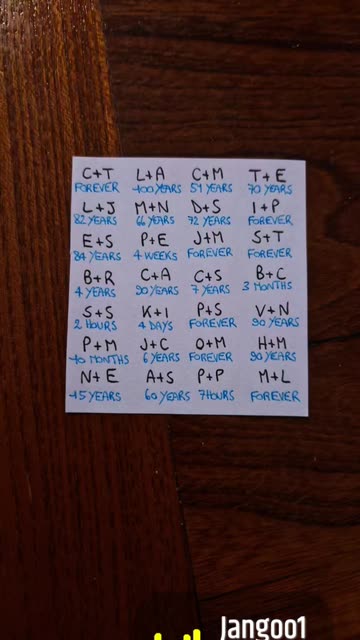 C+T L+A C+M T+E
FOREVER 100 YEARS 51 YEARS 70 YEARS
L+J M+N D+S I+P
82 YEARS 66 YEARS 72 YEARS FOREVER
E+S P+E J+M S+T
84 YEARS 4 WEEKS FOREVER FOREVER
B+R C+A C+S B+C
4 YEARS 90 YEARS 7 YEARS 3 MONTHS
S+S K+I P+S V+N
2 HOURS 4 DAYS FOREVER 90 YEARS
P+M J+C O+M H+M
10 MONTHS 6 YEARS FOREVER 90 YEARS
N+E A+S P+P M+L
15 YEARS 60 YEARS 7 HOURS FOREVER
Jangoo1